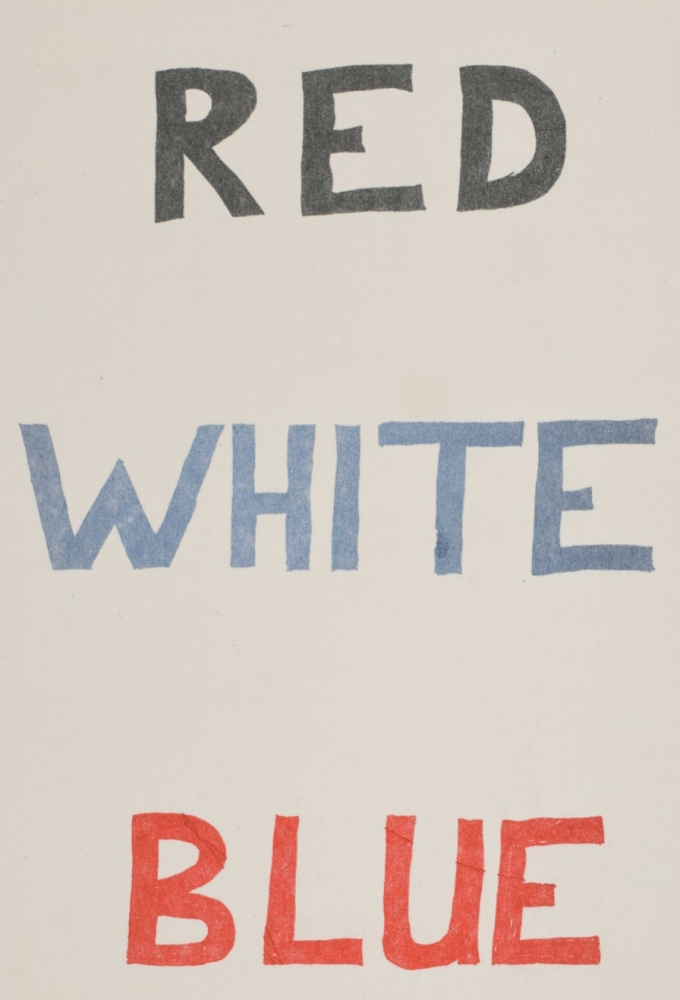 RED
WHITE
BLUE